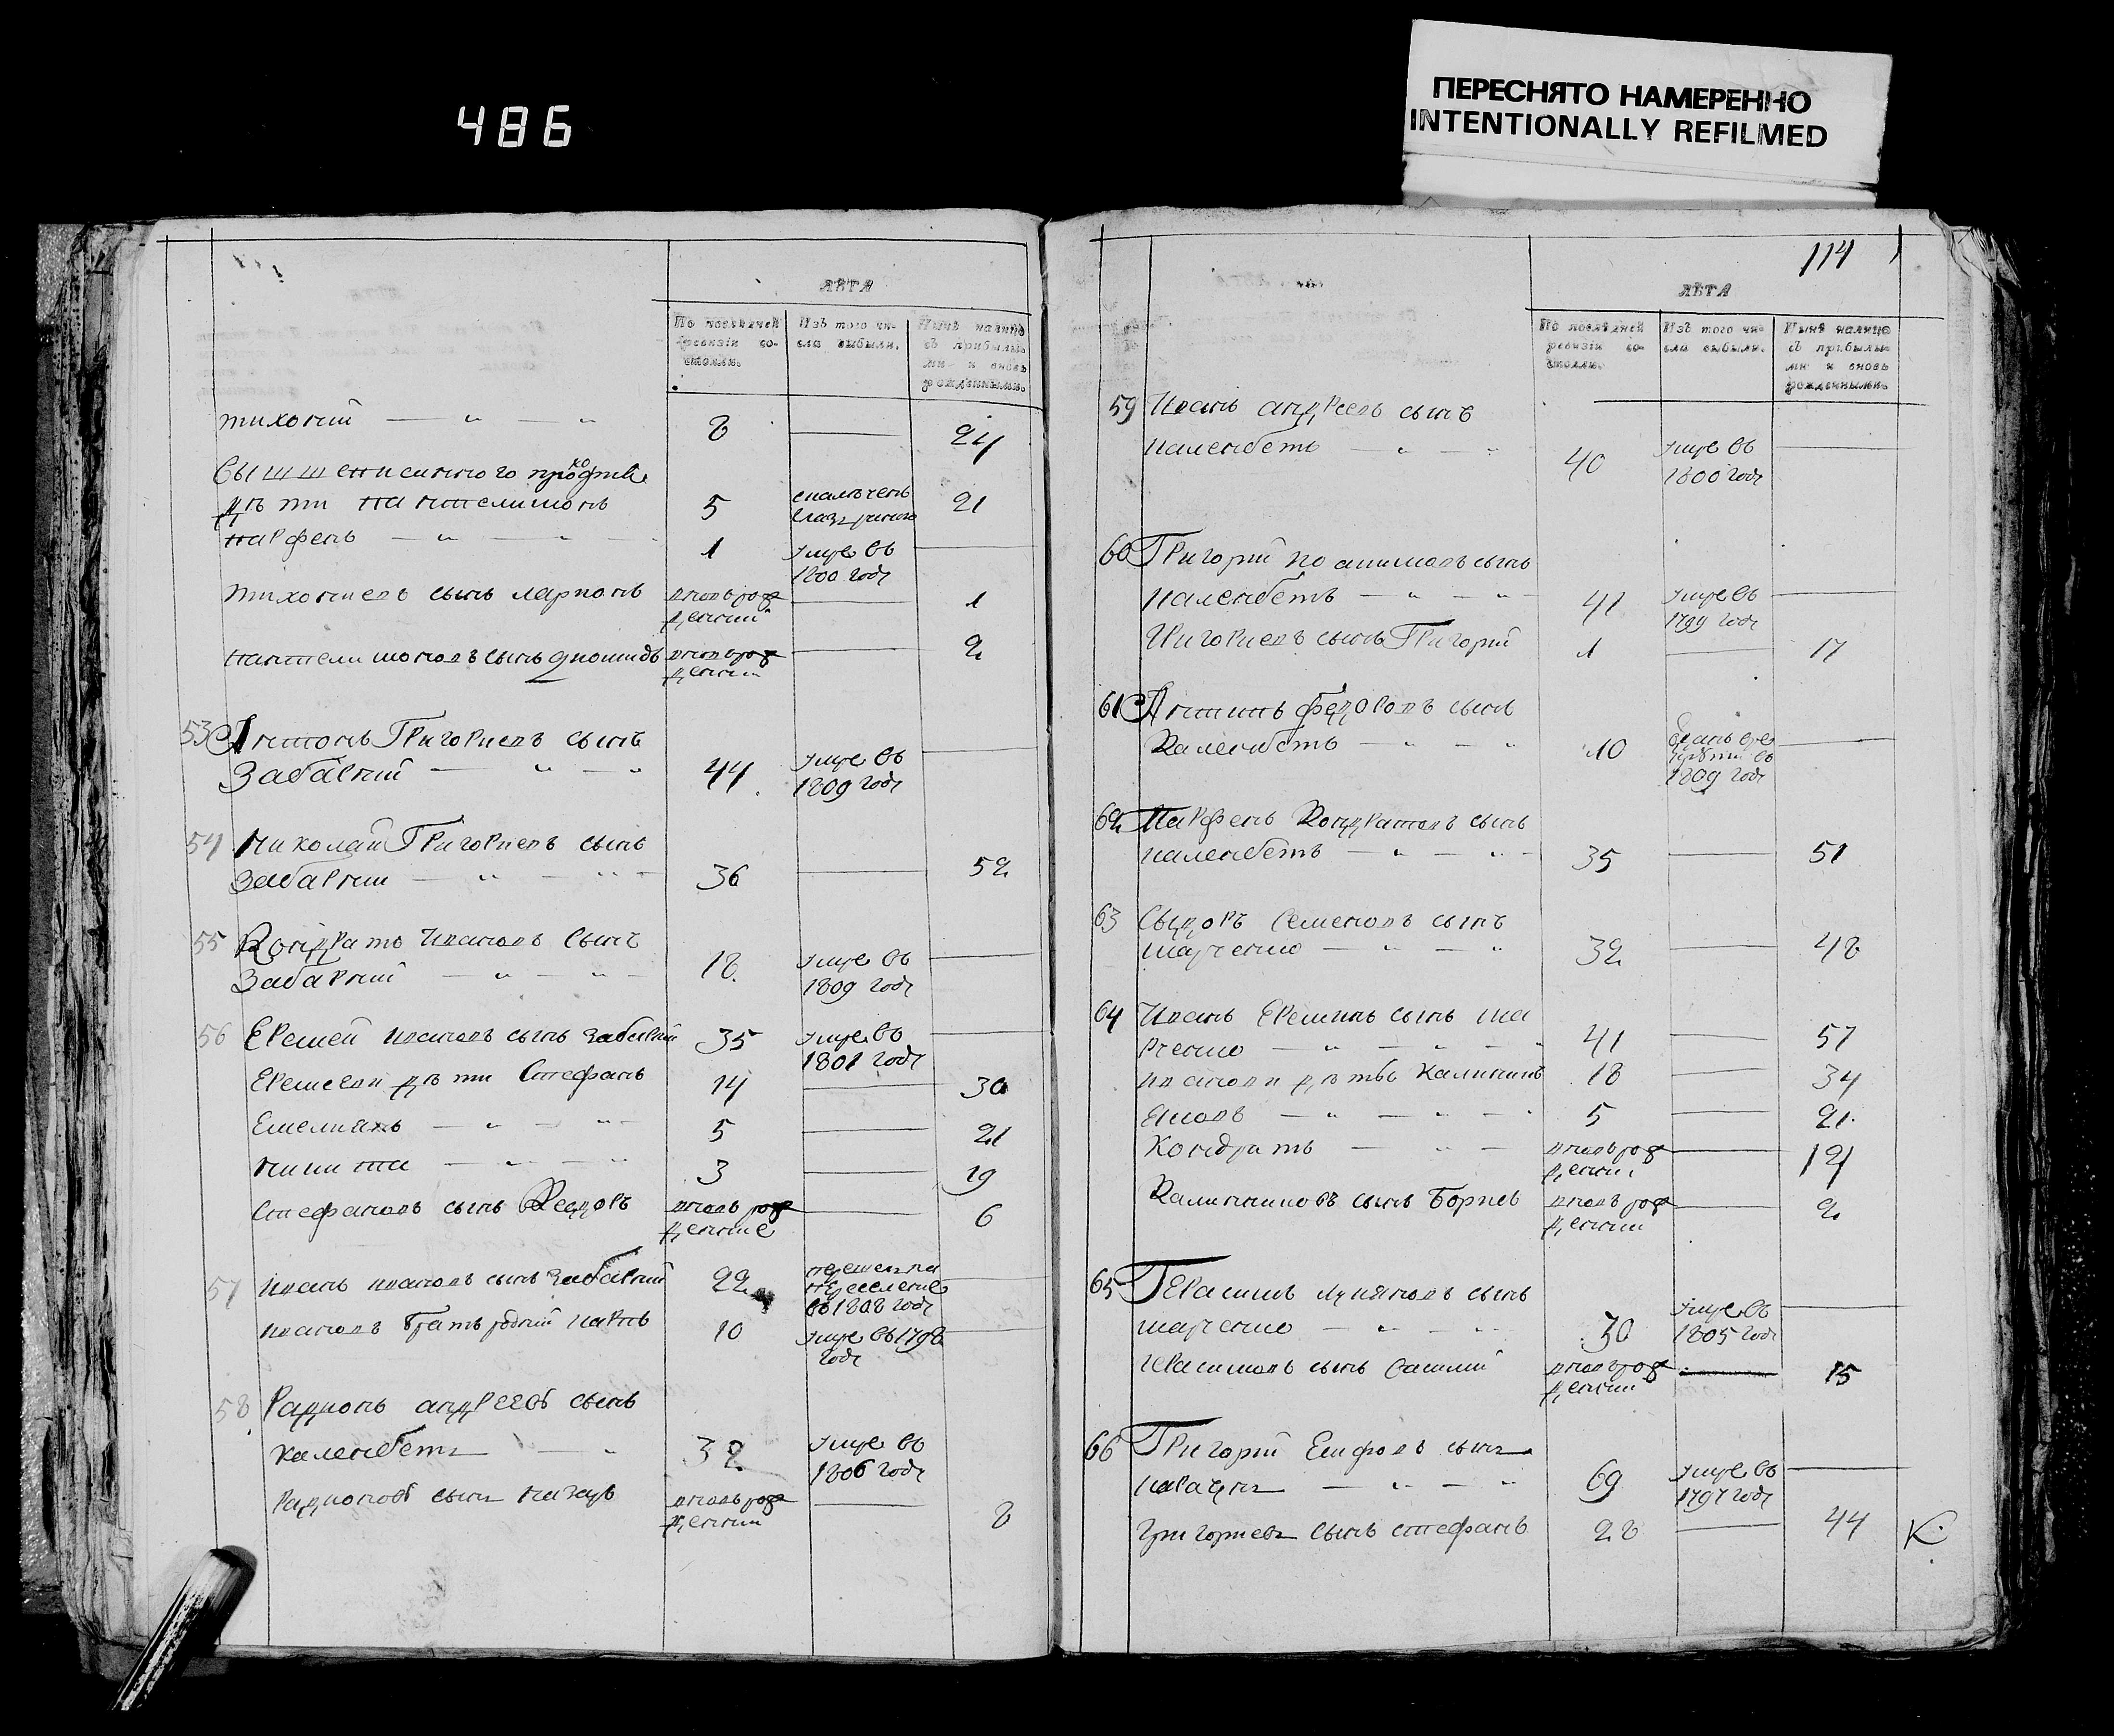 486
ПЕРЕСНЯТО НАМЕРЕННО
INTENTIONALLY REFILMED
ЛѢТА
По послѣдней ревизіи состояли.
Изъ того числа выбыли.
Нынѣ налицо съ прибылыми и вновь рожденными.
тихоній — 〃 — 〃 8 — 24
дѣти пантелимонъ 5 21
парфенъ — 〃 — 〃 — 1 умре въ 1800 году —
тихоніевъ сынъ ларионъ вновь рожденній — 1
пантелимоновъ сынъ вновь рожденній — 2
53 Антонъ Григориевъ сынъ
Забавній — 〃 — 〃 44 умре въ 1809 году —
54 Николай Григориевъ сынъ
Забавній — 〃 — 〃 — 36 — 52
55 Кондратъ Ивановъ сынъ
Забавній — 〃 — 〃 — 18 умре въ 1809 году —
56 Еремей ивановъ сынъ забавній 35 умре въ 1801 году —
Еремеви дѣти Стефанъ 14 — 30
Емелиянъ — 〃 — 〃 — 5 — 21
никита — 〃 — 〃 3 — 19
Стефановъ сынъ Федоръ вновь рожденніе — 6
57 иванъ ивановъ сынъ забавній 22 въ 1808 году —
ивановъ братъ родній 10 умре въ 1798 году —
58 Радионъ андреевъ сынъ
каленбетъ — 〃 32 умре въ 1806 году
Радионовъ сынъ вновь рожденній — 8
114
ЛѢТА
По послѣдней ревизіи состояли.
Изъ того числа выбыли.
Нынѣ налицо съ прибылыми и вновь рожденными.
59 Иванъ андреевъ сынъ
каленбетъ — 〃 — 〃 40 умре въ 1800 году —
60 Григорій сынъ
каленбетъ — 〃 — 〃 — 41 умре въ 1799 году —
Григориевъ сынъ Григорій 1 — 17
61 Антипъ федоровъ сынъ
Каленбетъ — 〃 — 〃 10 въ 1809 году —
62 Парфенъ Кондратовъ сынъ
каленбетъ — 〃 — 〃 — 35 — 51
63 Сыдоръ Семеновъ сынъ
шарченко — 〃 — 〃 32 — 48
64 Иванъ Ереминъ сынъ ша
рченко — 〃 — 〃 — 〃 41 — 57
ивановы дѣтъ Калиникъ 18 — 34
Яковъ — 〃 — 〃 — 〃 5 — 21
Кондратъ — 〃 — вновь рожденній — 12
Калинниковъ сынъ Борисъ вновь рожденній — 2
65 Герасимъ лукяновъ сынъ
шарченко — 〃 — 〃 30 умре въ 1805 году —
Герасимовъ сынъ василий вновь рожденній — 15
66 Григорій сынъ
— 〃 — 〃 69 умре въ 1797 году —
Григориевъ сынъ стефанъ 28 — 44 К.